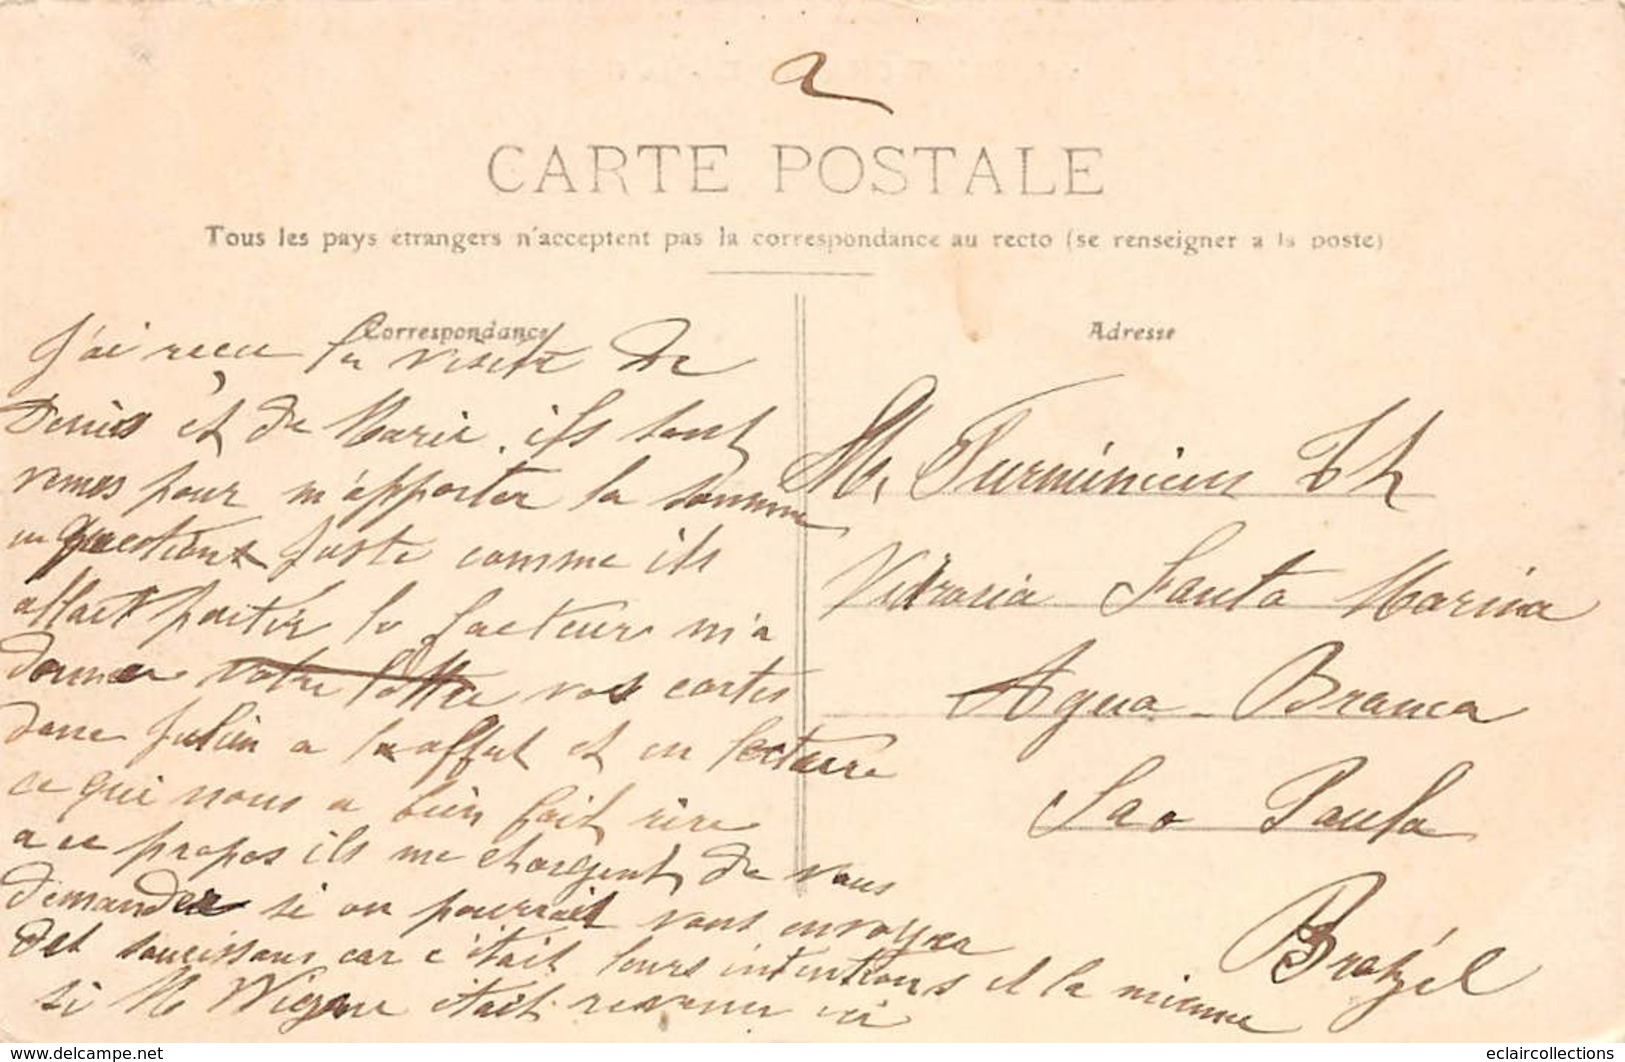 2
CARTE POSTALE
Tous les pays étrangers n'acceptent pas la correspondance au recto (se renseigner a la poste)
Correspondance
J'ai recu la visite de
Denis et de Marie. ils sont
venus pour m'apporter la somme
en question juste comme ils
allait partir le facteur m'a
donner votre lettre vos cartes
donc Julien a et en
ce qui nous a bien fait rire
a ce propos ils me chargent de vous
demander si on pourrait vous envoyer
des saucissons car c'était leurs intentions et la mienne
si Mr Wigne était revenu ici
Adresse
Mr. Turminieux Th
Vidraria Santa Marina
Agua-Branca
Sao Paula
Brézil
www.delcampe.net
eclaircollections